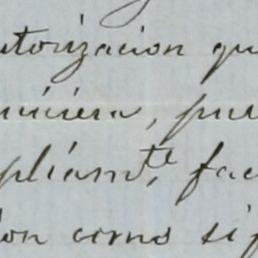 utorizacion qu
niciera, pue
pliam.te, fac
ion como si